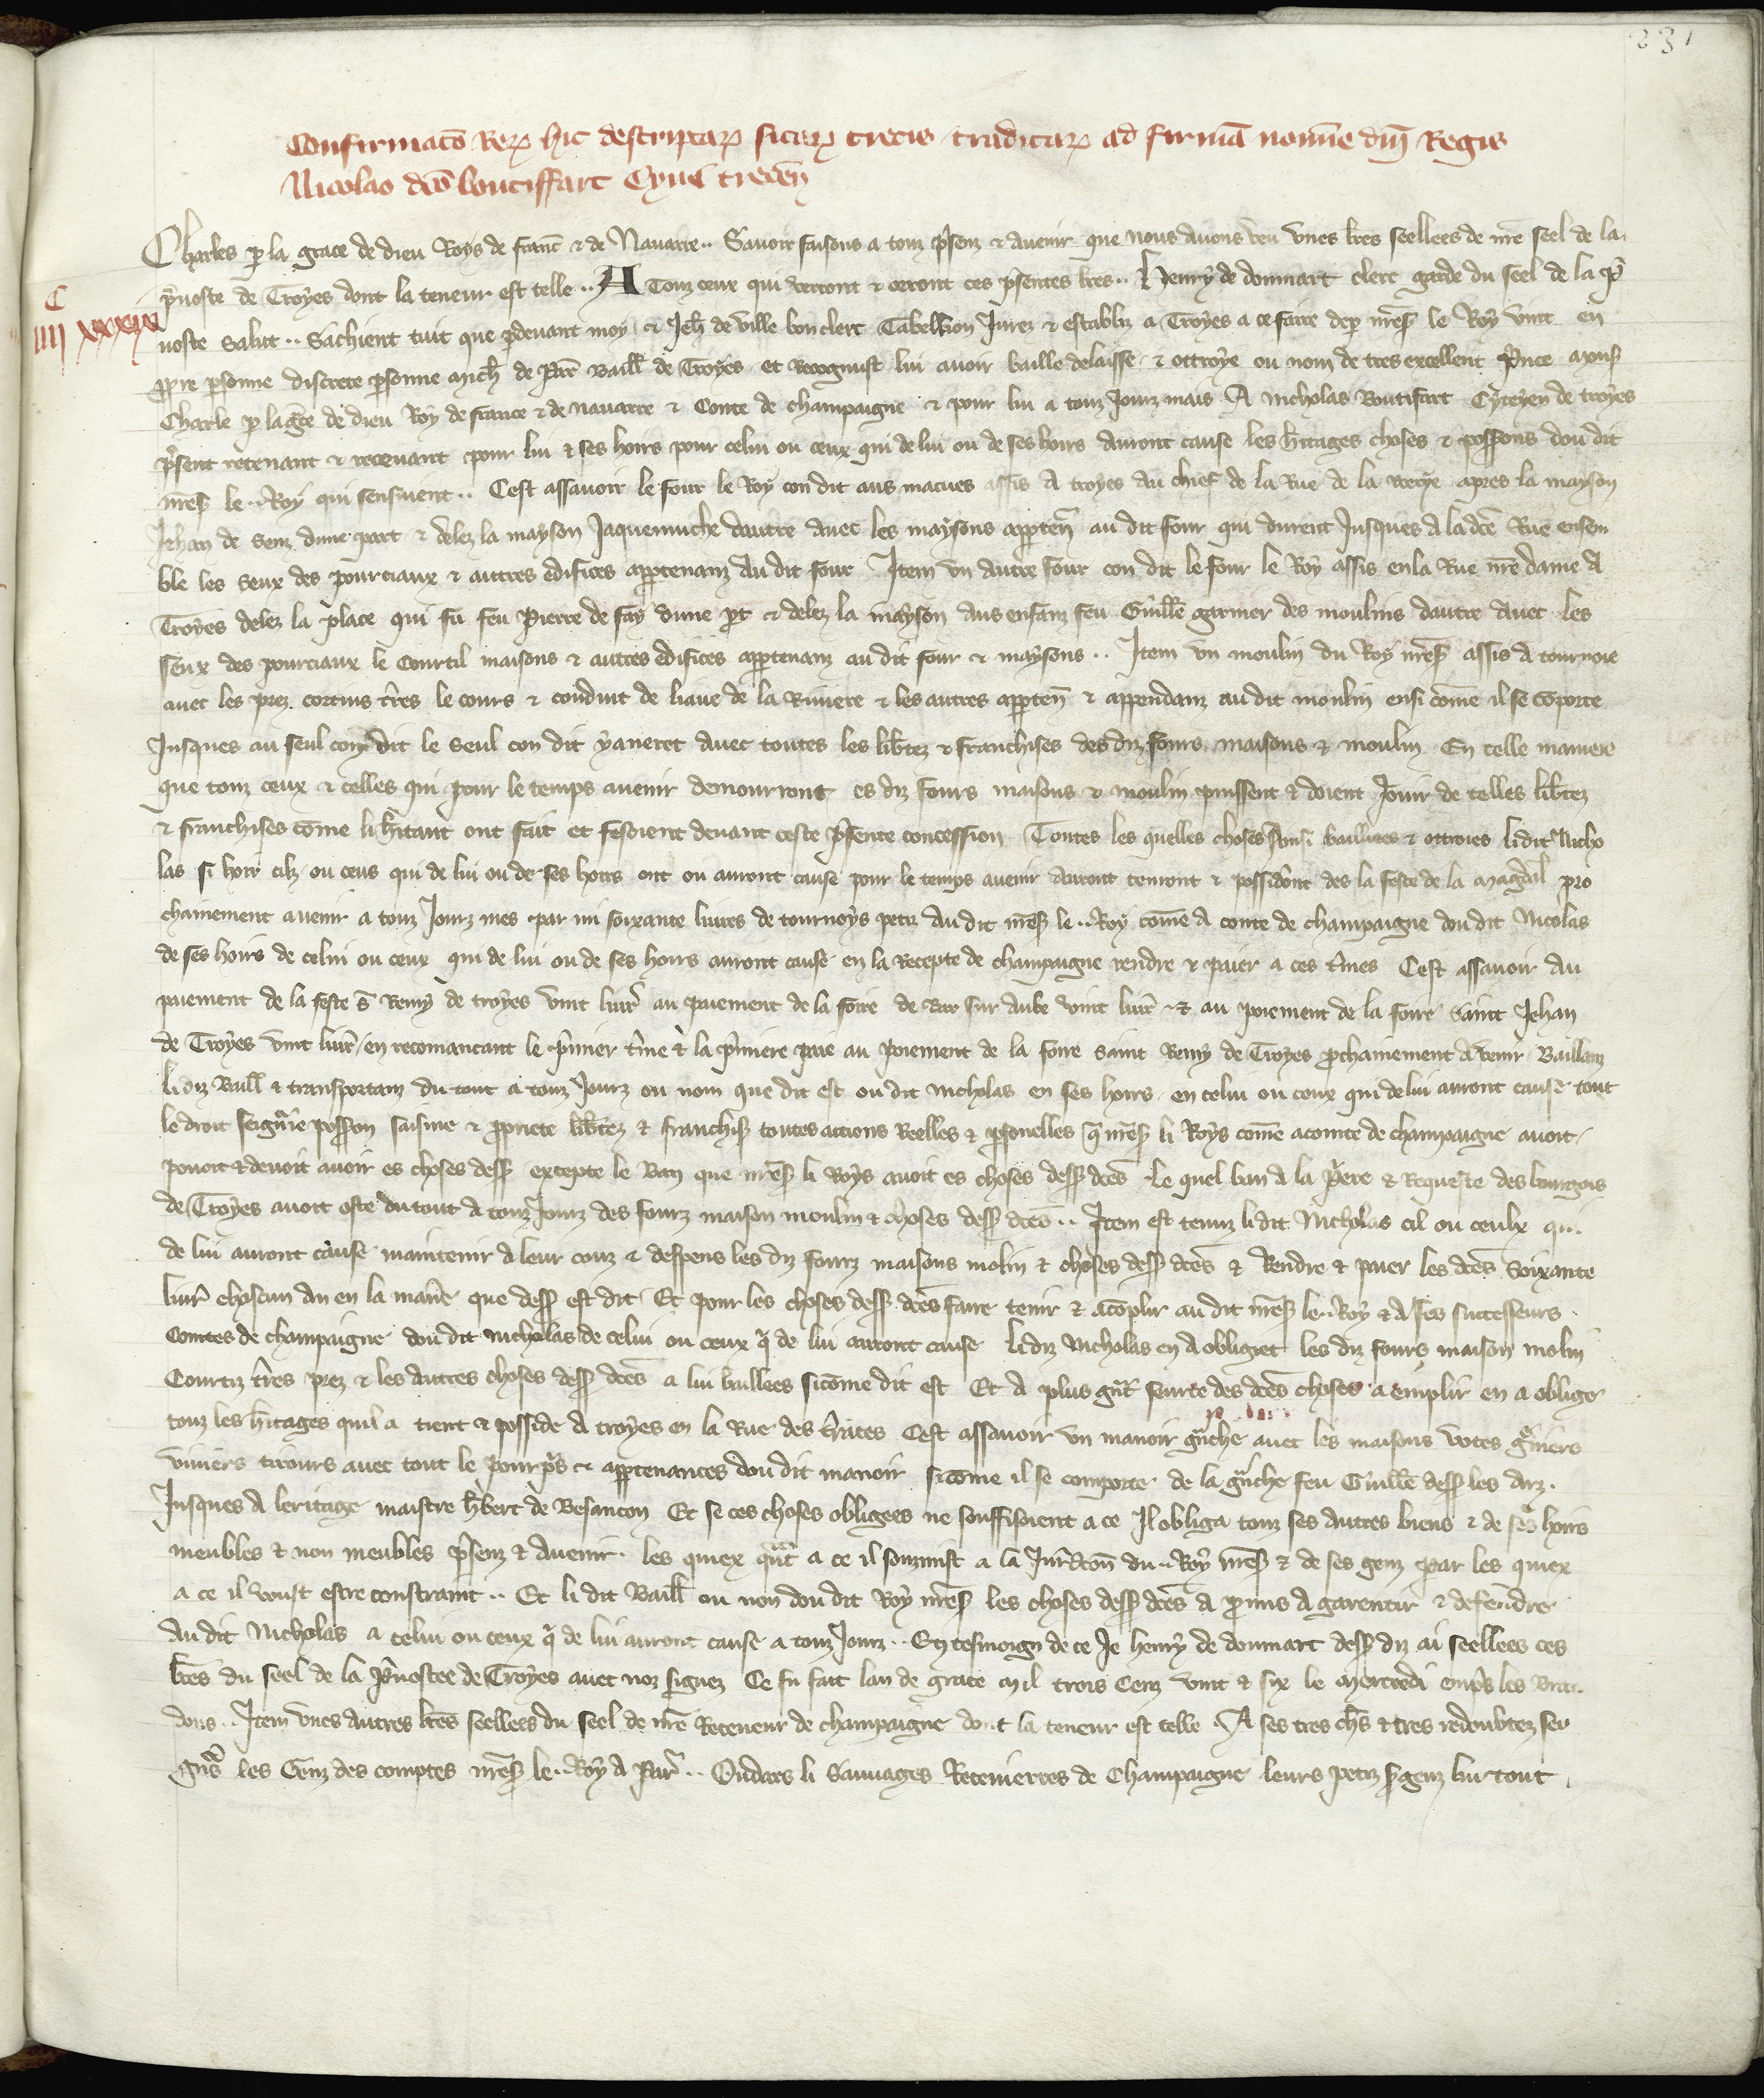 231
Confirmacō Reꝝ hic descriptaꝝ sitaꝝ trecis traditaꝝ ad firmā nomīe dn̄i Regis
Nicolao dc̄o boutiffart Cyui trecen̄
C
IIII XXXIX
Charles ꝑ la grace de dieu Roys de franc̄ & de Nauarre .. Sauoir faisons a touz p̄senz & auenir que nous auons veu vnes lr̄es seellees de nr̄e seel de la
p̄uoste de Troyes dont la teneur est telle .. A Touz ceux qui verront & orront ces p̄sentes lr̄es .. Henry de donmart clerc garde du seel de la p̄
uoste salut .. Sachient tuit que ꝑdeuant moy & Jeh̄ de ville bon clerc Tabellion Jurez & establiz a Troyes a ce faire de ꝑ mes̄ le Roy vint en
ꝓpre ꝑsonne discrete ꝑsonne Mich̄ de Par̄ Baill̄ de Troyes et Recognust lui auoir baille delaisse & ottroye ou nom de tres excellent p̄nce mons̄
Charle ꝑ la gc̄e de dieu Roy de france & de nauarre & Conte de champaigne & pour lui a touz Jourz mais A Nicholas Boutifart Cyteyen de troyes
p̄sent retenant & receuant pour lui & ses hoirs pour celui ou ceux qui de lui ou de ses hoirs auront cause les h̄itages choses & possessions dou dit
mes̄ le .. Roy qui sensuient .. Cest assauoir le four le Roy con dit aus macues assis a troyes au chief de la Rue de la apres la mayson
Jehan de Senz dune part & delez la mayson Jaquemuche dautre auec les maysons apꝑten̄ au dit four qui durent Jusques a la dc̄e Rue ensem
ble les seux des pourciaux & autres edifices apꝑtenanz au dit four Item vn autre four con dit le four le Roy assis en la Rue nr̄e dame a
Troyes delez la place qui fu feu Pierre de fay dune ꝑt & delez la mayson aus enfanz feu Guill̄e garnier des moulins dautre auec les
seux des pourciaux le Courtil maisons & autres edifices apꝑtenanz au dit four & maysons .. Item vn moulin du Roy mes̄ assis a tournoie
auec les prez cortius tr̄res le cours & conduit de liaue de la Riuiere & les autres apꝑten̄ & appendanz au dit moulin ensi cōme il se cōporte
Jusques au seul con dit le seul con dit yaneret auec toutes les lib̄tez & franchises des diz fours maisons & moulin En telle maniere
que touz ceux & celles qui pour le temps auenir demourront es diz fours maisons & moulin puissent & doient Jouir de telles lib̄tez
& franchises cōme li h̄itant ont fait et fesoient deuant ceste p̄sente concession Toutes les quelles choses ainsi baillees & ottroies li dit Nicho
las si hoir cilz ou ceus qui de lui ou de ses hoirs ont ou auront cause pour le temps auenir auront tenront & possidront des la feste de la Magdal̄ pro
chainement auenir a touz Jourz mes par mi soixante liures de tournoys petiz au dit mes̄ le .. Roy cōme a conte de champaigne dou dit Nicolas
de ses hoirs de celui ou ceux qui de lui ou de ses hoirs auront cause en la Recepte de champaigne rendre & paier a ces t̄mes Cest assauoir au
paiement de la feste s̄ Remy de troyes vint liur̄ au paiement de la foire de Bar sur aube vint liur̄ & au poiement de la foire saint Jehan
de Troyes vint liur̄ en recomancant le p̄mier t̄me & la p̄miere paie au poiement de la foire saint Remy de Troyes ꝓchainement a venir Baillanz
li diz Baill̄ & transportanz du tout a touz Jourz ou nom que dit est ou dit Nicholas en ses hoirs en celui ou ceux qui de lui auront cause tout
le droit seign̄rie possession saisine & ꝓpriete lib̄tez & franchises toutes actions Reelles & ꝑsonelles q̄ mes̄ li Roys cōme a comte de champaigne auoit
pouoit & deuoit auoir es choses dess̄ excepte le Ban que mes̄ li Roys auoit es choses dess̄ dc̄es le quel ban a la p̄ere & Requeste des bourgois
de Troyes auoit oste du tout a touz Jourz des fourz maison moulin & choses dess̄ dc̄es .. Item est tenuz li dit Nicholas cil ou ceulx qui
de lui auront cause maintenir a leur couz & despens les diz fourz maisons molin & choses dess̄ dc̄es & Rendre & paier les dc̄es soixante
liur̄ chascun an en la manie̅re que dess̄ est dit Et pour les choses dess̄ dc̄es faire tenir & acōplir au dit mes̄ le .. Roy & a ses successeurs
Comtes de champaigne dou dit Nicholas de celui ou ceux q̄ de lui auront cause li diz Nicholas en a obligiet les diz fours maison molin
Courtiz tr̄res prez & les autres choses dess̄ dc̄es a lui baillees sicōme dit est Et a plus gn̄t seurte des dc̄es choses a emplir en a oblige
touz les h̄itages quil a tient & posside a troyes en la Rue des Cest assauoir vn manoir gn̄che auec les maisons votes gr̄niers
viuiers tirours auec tout le pourpris & apꝑtenances dou dit manoir sicōme il se comporte de la gn̄che feu Guill̄e dess̄ les arz
Jusques a leritage maistre h̄bert de Besancon Et se ces choses obligees ne souffisoient a ce Il obliga touz ses autres biens & de ses hoirs
meubles & non meubles p̄senz & auenir les quiex qn̄t a ce il souzmist a la Jur̄dicōn du .. Roy mes̄ & de ses genz par les quiex
a ce il voust estre constraint .. Et li dit Baill̄ ou non dou dit Roy mes̄ les choses dess̄ dc̄es a ꝓmis a garentir & defendre
au dit Nicholas a celui ou ceux q̄ de lui auront cause a touz Jourz .. En tesmoign de ce Je henry de donmart dess̄ diz ai seellees ces
lr̄es du seel de la p̄uostee de Troyes auec noz signez Ce fu fait lan de grace Mil trois cenz vint & six le Mercredi enp̄s les Bran
dons .. Item vnes autres lr̄es seellees du seel de nr̄e Receueur de champaigne dont la teneur est telle A ses tres ch̄s & tres redoubtez sei
gn̄s les Genz des comptes mes̄ le .. Roy a Par̄ .. Oudars li Sauuages Receuierres de Champaigne leurs petiz s̄genz lur tout